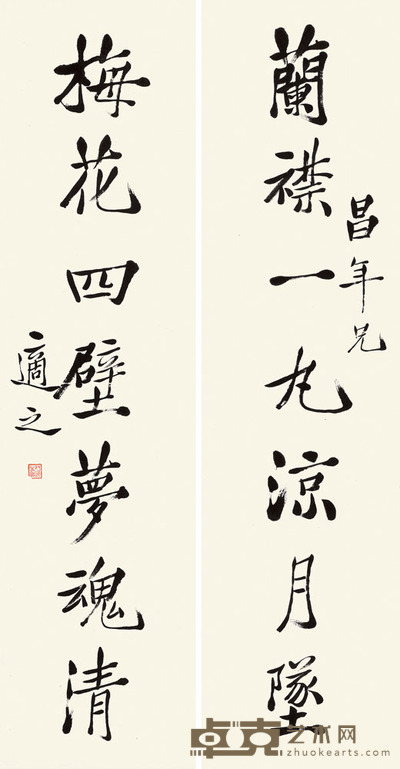 蘭襟一丸涼月墜
昌年兄
梅花四壁夢魂清
適之
卓克艺术网
zhuokearts.com